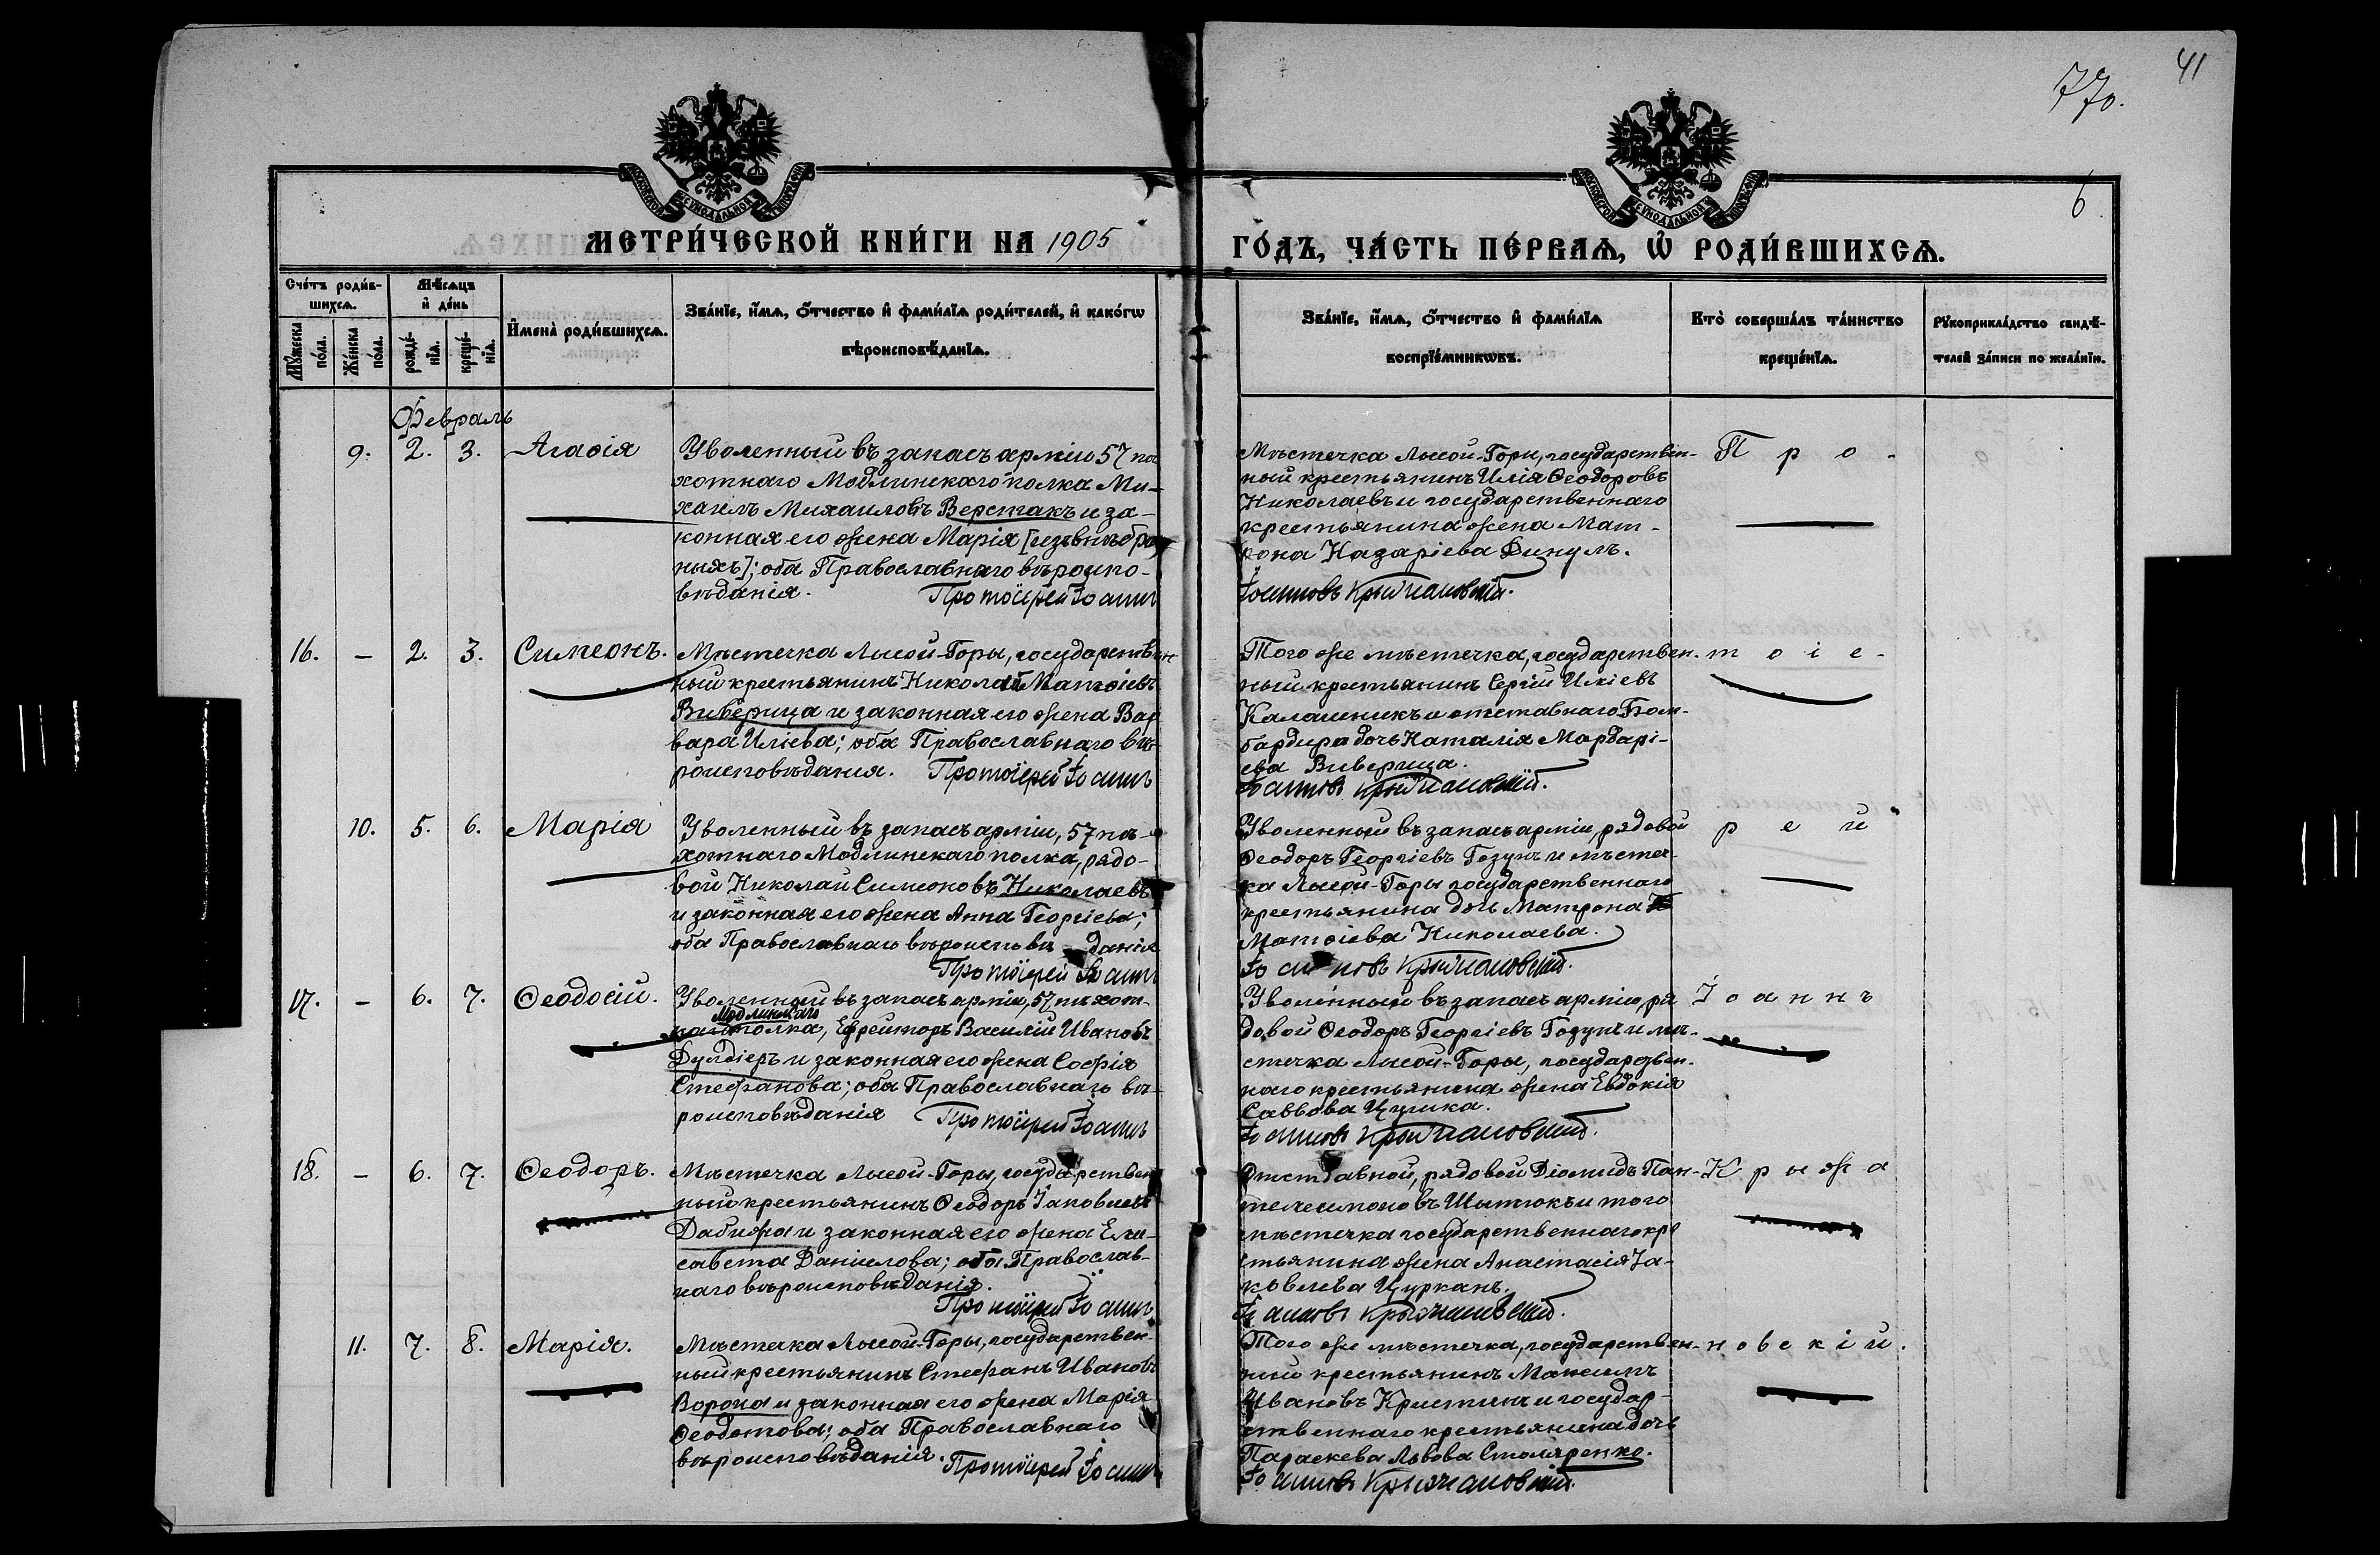 41
770.
6
МЕТРИ́ЧЕСКОЙ КНИ́ГИ НА 1905
ГО́ДЪ, ЧА́СТЬ ПЕ́РВАѦ, Ѡ҆ РОДИ́ВШИХСѦ.
Сче́тъ роди́в-
шихсѧ.
Мꙋ́жеска по́ла.
Же́нска пола.
Мѣ́сѧцъ
и҆ де́нь
рожде́-
нїѧ.
креще́-
нїѧ.
И҆мена̀ роди́вшихсѧ.
Зва́нїе, и҆́мѧ, ѻ҆́тчество и҆ фами́лїѧ роди́телей, и҆ како́гѡ
вѣроисповѣ́данїѧ.
Зва́нїе, и҆́мѧ, ѻ҆́тчество и҆ фами́лїѧ
воспрїе́мникѡвъ.
Кто̀ соверша́лъ та́инство
креще́нїѧ.
Рꙋкоприкла́дство свидѣ́-
телей за́писи по жела́нїю.
Февраль
9. 2. 3. Агаѳія
Уволенный въ запасъ арміи 57 пѣ
хотнаго Модлинскаго полка Ми-
хаилъ Михаиловъ Верстакъ и за-
конная его жена Марія
ныхъ]; оба Православнаго вѣроиспо-
вѣданія. Протоіерей Іоаннъ
Мѣстечка Лысой-Горы, государствен-
ный крестьянинъ Илія Ѳеодоровъ
Николаевъ и государственнаго
крестьянина жена Мат-
рона Назаріева Дикулъ.
Іоанновъ Крыжановскій.
П р о -
16. — 2. 3. Симеонъ.
Мѣстечка Лысой-Горы, государствен
ный крестьянинъ Николай Матѳіевъ
Виверица и законная его жена Вар
вара Иліева; оба Православнаго вѣ-
роисповѣданія. Протоіерей Іоаннъ
Того же мѣстечка, государствен-
ный крестьянинъ Сергій Иліевъ
Калашникъ и отставнаго Бом-
бардира дочь Наталія Мардарі-
ева Виверица.
Іоанновъ Крыжановскій.
т о і е -
10. 5. 6. Марія
Уволенный въ запасъ арміи, 57 пѣ-
хотнаго Модлинскаго полка, рядо-
вой Николай Симеоновъ Николаевъ
и законная его жена Анна Георгіева;
оба Православнаго вѣроисповѣ-данія
Протоіерей Іоаннъ
Уволенный въ запасъ арміи, рядовой
Ѳеодоръ Георгіевъ Гозунъ и мѣстеч-
ка Лысой-Горы государственнаго
крестьянина дочь Матрона
Матѳіева Николаева.
Іоанновъ Крыжановскій.
р е й
17. — 6. 7. Ѳеодосій.
Уволенный въ запасъ арміи, 57 пѣхот-
Модлинскаго
наго полка, Ефрейторъ Василій Ивановъ
Дулдіеръ и законная его жена Софія
Стефанова; оба Православнаго вѣ-
роисповѣданія Протоіерей Іоаннъ
Уволенный въ запасъ арміи, ря
довой Ѳеодоръ Георгіевъ Гозунъ и мѣ-
стечка Лысой-Горы, государствен-
наго крестьянина жена Евдокія
Саввова Цушка.
Іоанновъ Крыжановскій.
І о а н н ъ
18. — 6. 7. Ѳеодоръ.
Мѣстечка Лысой-Горы, государствен
ный крестьянинъ Ѳеодоръ Іаковлевъ
Дабижа и законная его жена Ели-
савета Даніилова; оба Православ-
наго вѣроисповѣданія.
Протоіерей Іоаннъ
Отставной, рядовой Діомидъ Пан-
телеимоновъ Шытюкъ и того
мѣстечка государственнаго кре
стьянина жена Анастасія Іа-
ковлева Цурканъ.
Іоанновъ Крыжановскій.
К р ы ж а
11. 7. 8. Марія.
Мѣстечка Лысой-Горы, государствен-
ный крестьянинъ Стефанъ Ивановъ
Ворона и законная его жена Марія
Ѳеодотова; оба Православнаго
вѣроисповѣданія. Протоіерей Іоаннъ
Того же мѣстечка, государствен-
ный крестьянинъ Максимъ
Ивановъ Кристичъ и государ-
ственнаго крестьянина дочь
Параскева Львова Столяренко.
Іоанновъ Крыжановскій.
н о в с к і й.